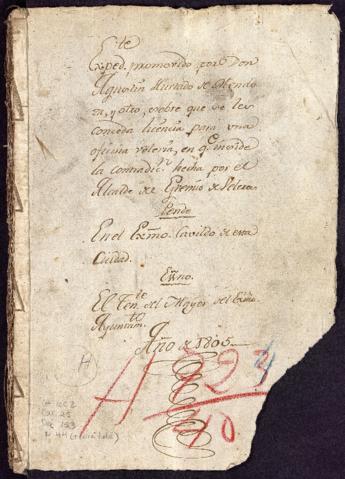 Exped.te promovido, por Don
Agustin Hurtado de Mendo
za, y otro, sobre que se les
conceda licencia para una
oficina veleria, en q.e incide
la contradic.n hecha por el
Alcalde de Gremio de
Pende
En el Exmo. Cavildo de esta
Ciudad.
Esno.
El Ten.te del Mayor del Exmo.
Ayuntam.to
Año de 1805
H
A 723
40